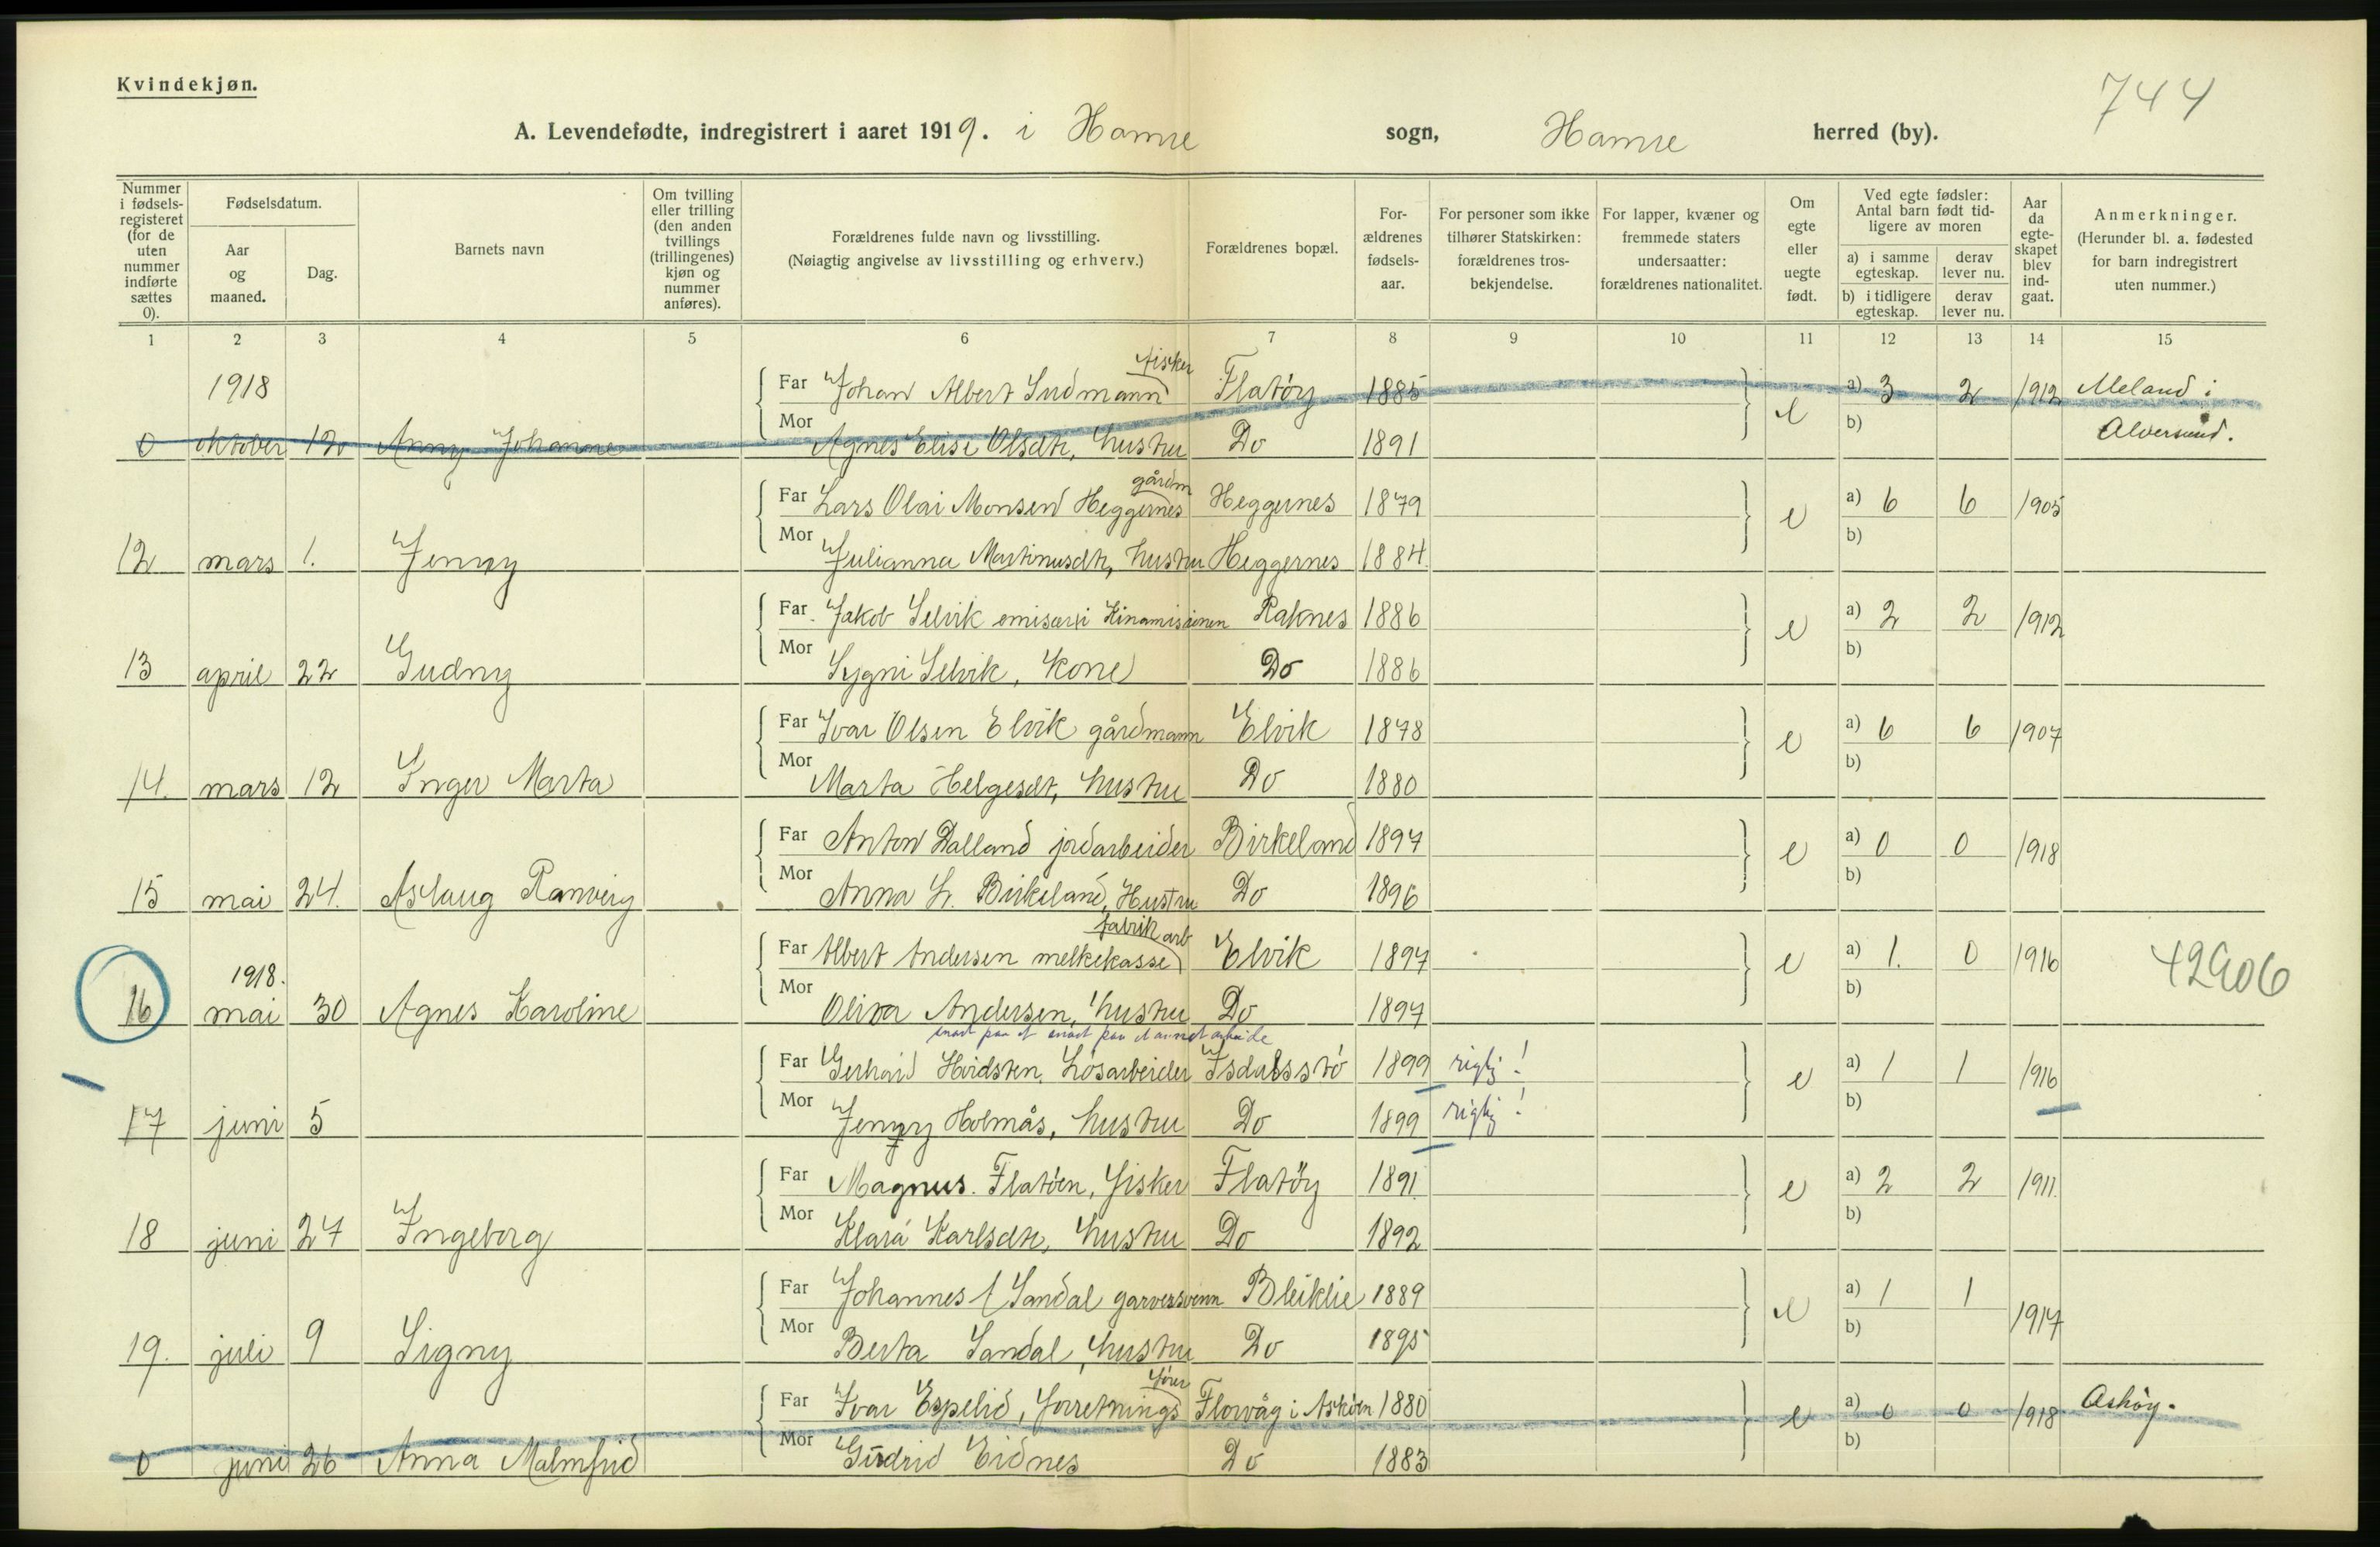 Kvindekjøn.
744
A. Levendefødte, indregistrert i aaret 1919. i Hamre sogn, Hamre herred (by).
Nummer i fødselsregisteret (for de uten nummer indførte sættes 0).
Fødselsdatum.
Aar og maaned.
Dag.
Barnets navn
Om tvilling eller trilling (den anden tvillings (trillingenes) kjøn og nummer anføres).
Forældrenes fulde navn og livsstilling.
(Nøiagtig angivelse av livsstilling og erhverv.)
Forældrenes bopæl.
Forældrenes fødselsaar.
For personer som ikke tilhører Statskirken: forældrenes trosbekjendelse.
For lapper, kvæner og fremmede staters undersaatter: forældrenes nationalitet.
Om egte eller uegte født.
Ved egte fødsler: Antal barn født tidligere av moren
a) i samme egteskap. derav lever nu.
b) i tidligere egteskap. derav lever nu.
Aar da egteskapet blev indgaat.
Anmerkninger.
(Herunder bl. a. fødested for barn indregistrert uten nummer.)
1 2 3 4 5 6 7 8 9 10 11 12 13 14 15
fisker
1918 Far Johan Albert Sudmann Flatöy 1885 e a) 3 2 1912 Meland i
0 oktober 12 Anny Johanne Mor Agnes Elise Olsdtr, hustru Do 1891 b) Alversund.
gårdm
Far Lars Olai Monsen Heggernes Heggernes 1879 e a) 6 6 1905
12 mars 1. Jenny Mor Julianna Martinusdtr, hustru Heggernes 1884. b)
Far Jakob Selvik emisær i Kinamisionen Raknes 1886 e a) 2 2 1912
13 april 22 Gudny Mor Sygni Selvik, Kone Do 1886 b)
Far Ivar Olsen Elvik gårdmann Elvik 1878 e a) 6 6 1907
14. mars 12 Inger Marta Mor Marta Helgesdt, hustru Do 1880 b)
Far Anton Dalland jordarbeider Birkeland 1897 e a) 0 0 1918
15 mai 24. Aslaug Ranveig Mor Anna L. Birkeland, Hustru Do 1896 b)
fabrik arb
1918. Far Albert Andersen melkekasse Elvik 1897 e a) 1. 0 1916 42906
16 mai 30 Agnes Karoline Mor Oliva Andersen, hustru Do 1897 b)
snart paa et snart paa et annet arbeide
Far Gerhard Hvidsten, Lösarbeider Isdalsstö 1899 rigtig! e a) 1 1 1916
17 juni 5 Mor Jenny Holmås, hustru Do 1899 rigtig! b)
Far Magnus Flatöen, Fisker Flatöy 1891 e a) 2 2 1911.
18 juni 27 Ingeborg Mor Klara Karlsdtr, hustru Do 1892 b)
Far Johannes Sandal garversvenn Bleiklie 1889 e a) 1 1 1917
19. juli 9 Signy Mor Berta Sandal, hustru Do 1895 b)
förer
Far Ivar Espelid, Forretnings Florvåg i Asköen 1880 e a) 0 0 1918 Asköy.
0 juni 26 Anna Malmfrid Mor Gudrid Eidnes Do 1883 b)